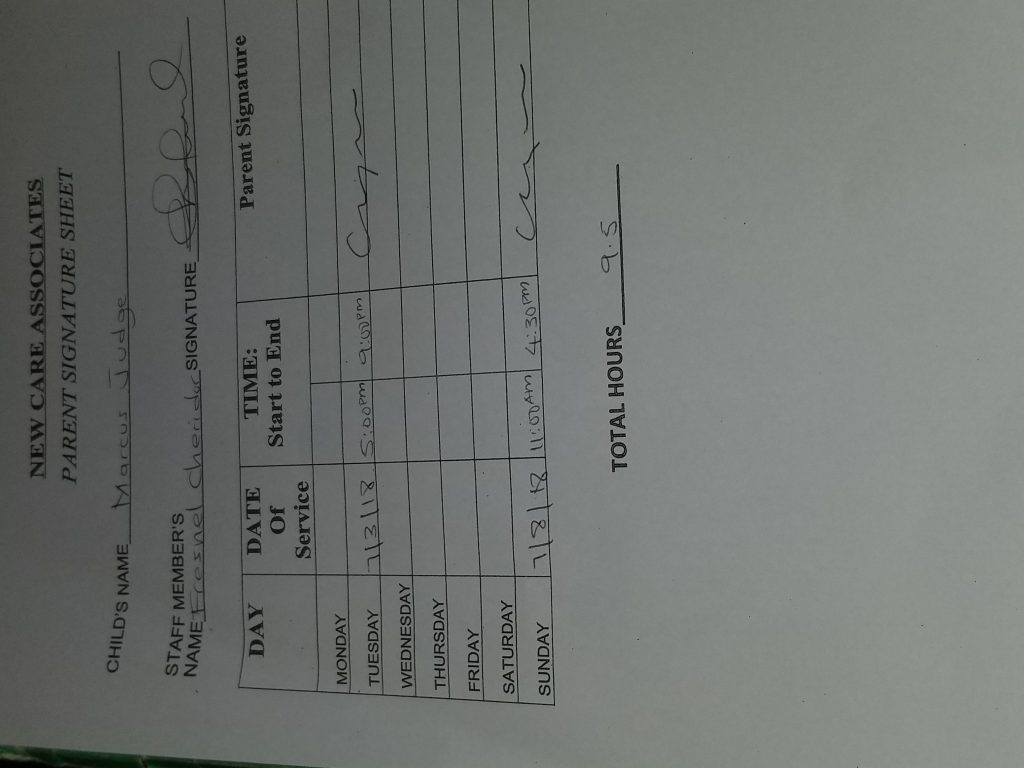 NEW CARE ASSOCIATES
PARENT SIGNATURE SHEET
CHILD'S NAME Marcus Judge
STAFF MEMBER'S
NAME Fresnel Cheridor SIGNATURE
DAY DATE Of Service TIME: Start to End Parent Signature
MONDAY
TUESDAY 7/3/18 5:00pm 9:00pm
WEDNESDAY
THURSDAY
FRIDAY
SATURDAY
SUNDAY 7/8/18 11:00AM 4:30pm
TOTAL HOURS 9.5